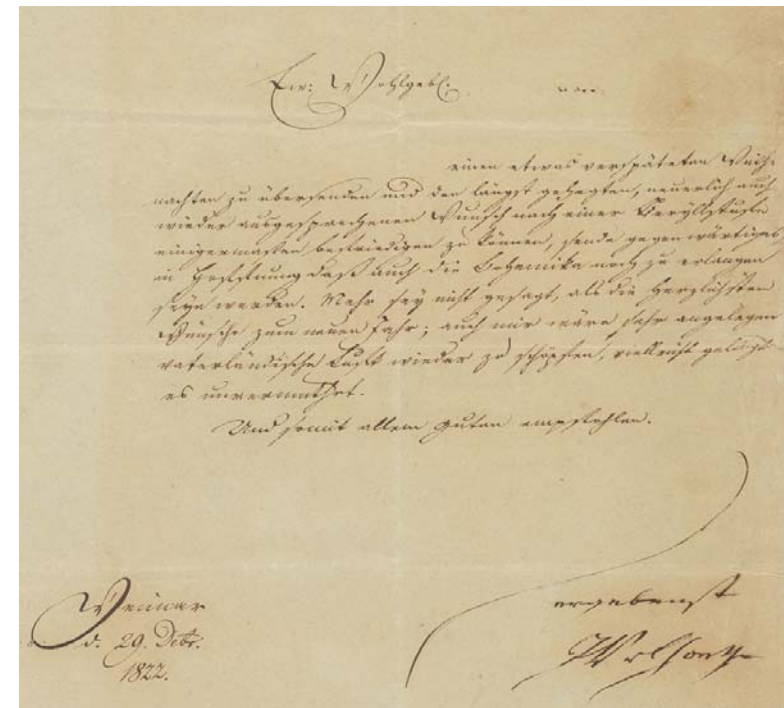 Ew: Wohlgebl:
einen etwas verspäteten Weih-
nachten zu übersenden und den längst gehegten, neuerlich auch
wieder ausgesprochenen Wunsch nach einer Beryllstufe
einigermassen befriedigen zu können, sende gegenwärtiges
in Hoffnung daß auch die Bohemika noch zu erlangen
seyn werden. Mehr sey nicht gesagt, als die herzlichsten
Wünsche zum neuen Jahr; auch mir wäre sehr angelegen
vaterländische Luft wieder zu schöpfen, vielleicht gelingt
es unvermuthet.
Und somit allem guten empfohlen.
Weimar
d. 29. Debr.
1822.
ergebenst
JWvGoethe